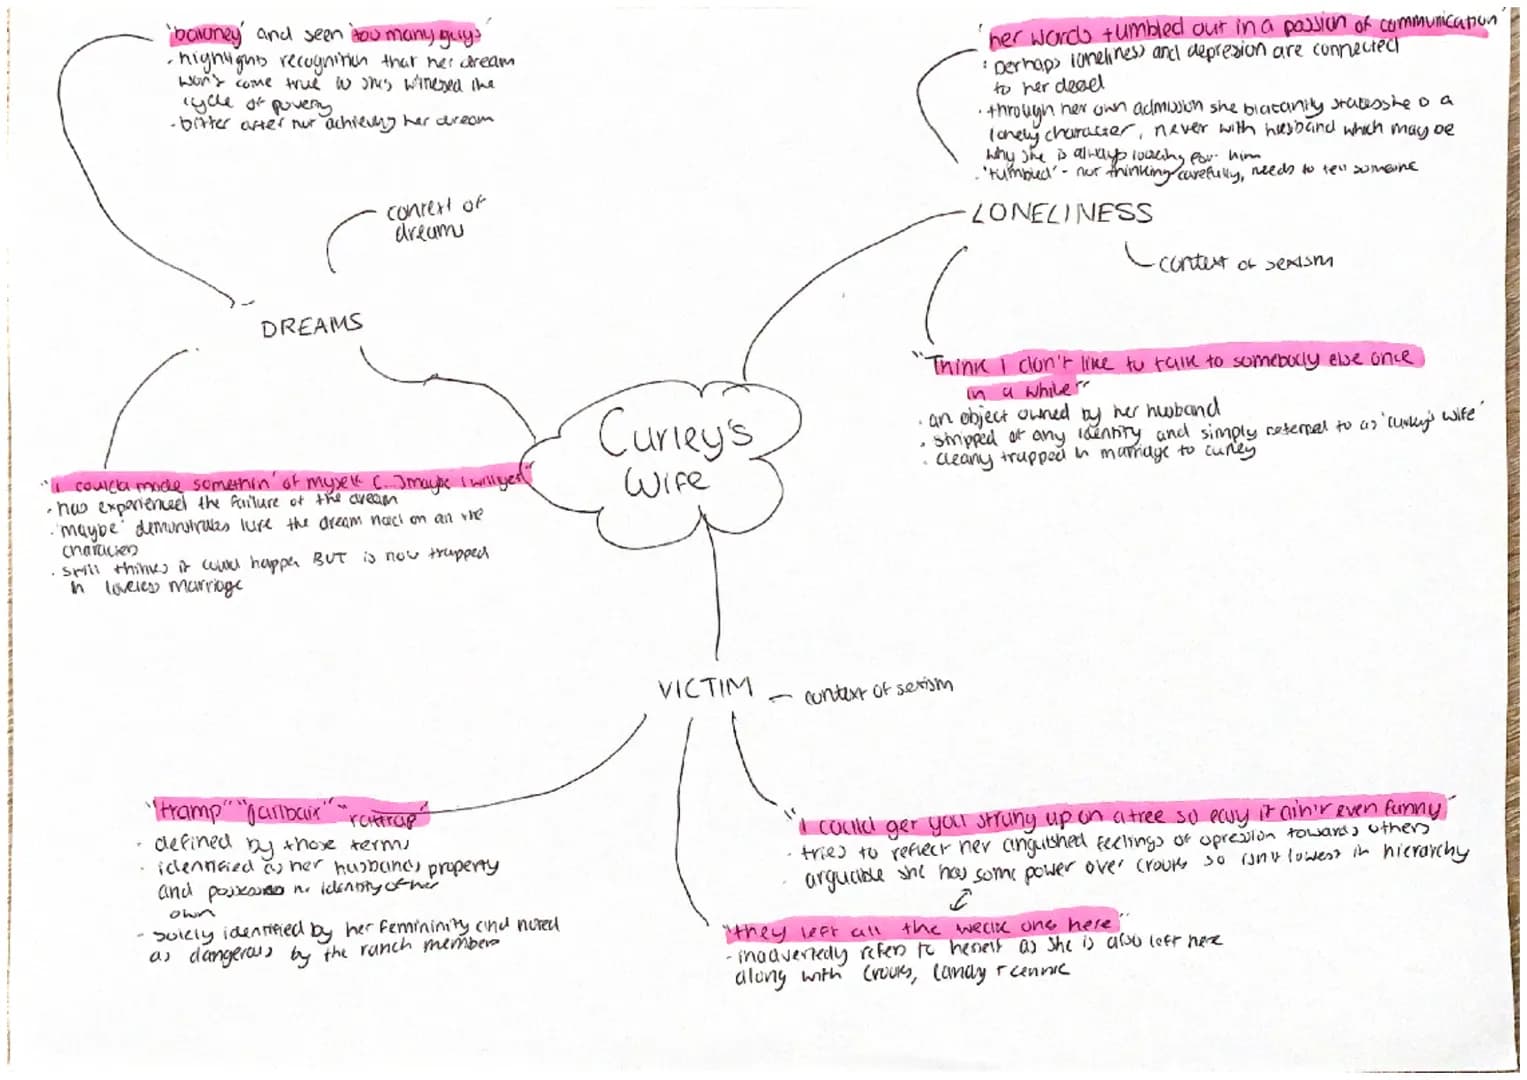 'baloney' and seen 'too many guys'
· highlights recognition that her dream
won't come true as she's witnessed the
cycle of poverty
- bitter after not achieving her dream
context of
dreams
DREAMS
"I coulda made somethin' of myself (...) maybe I will yet"
· has experienced the failure of the dream
· 'maybe' demonstrates lure the dream had on all the
characters
· still thinks it could happen BUT is now trapped
in loveless marriage
'her words tumbled out in a passion of communication'
· perhaps loneliness and depression are connected
to her dead
· through her own admission she blatantly states she is a
lonely character, never with husband which may be
why she is always looking for him
· 'tumbled' - not thinking carefully, needs to tell someone
LONELINESS
context of sexism
"Think I don't like to talk to somebody else once
in a while"
· an object owned by her husband
· stripped of any identity and simply referred to as 'curley's wife'
· clearly trapped in marriage to curley
Curley's
Wife
VICTIM - context of sexism
"tramp" "jailbait" "rattrap"
· defined by those terms
· identified as her husbands property
and possesses no identity of her
own
- solely identified by her femininity and noted
as dangerous by the ranch members
"I could get you strung up on a tree so easy it ain't even funny"
· tries to reflect her anguished feelings of opression towards others
· arguable she has some power over crooks so isn't lowest in hierarchy
"they left all the weak ones here"
- inadvertedly refers to herself as she is also left here
along with crooks, candy + lennie